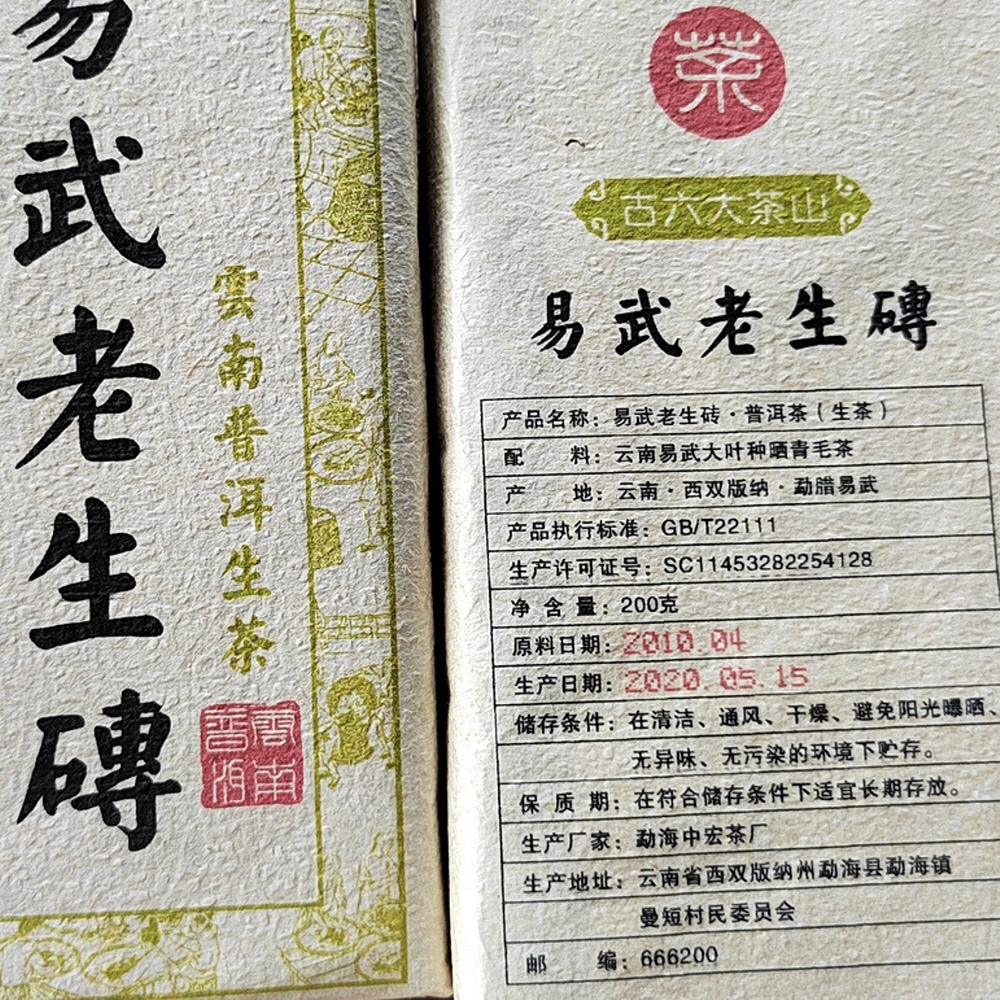 易武老生磚
雲南普洱生茶
雲南普洱
茶
古六大茶山
易武老生磚
产品名称：易武老生砖·普洱茶（生茶）
配料：云南易武大叶种晒青毛茶
产地：云南·西双版纳·勐腊易武
产品执行标准：GB/T22111
生产许可证号：SC11453282254128
净含量：200克
原料日期：2010.04
生产日期：2020.05.15
储存条件：在清洁、通风、干燥、避免阳光曝晒、
无异味、无污染的环境下贮存。
保质期：在符合储存条件下适宜长期存放。
生产厂家：勐海中宏茶厂
生产地址：云南省西双版纳州勐海县勐海镇
曼短村民委员会
邮编：666200